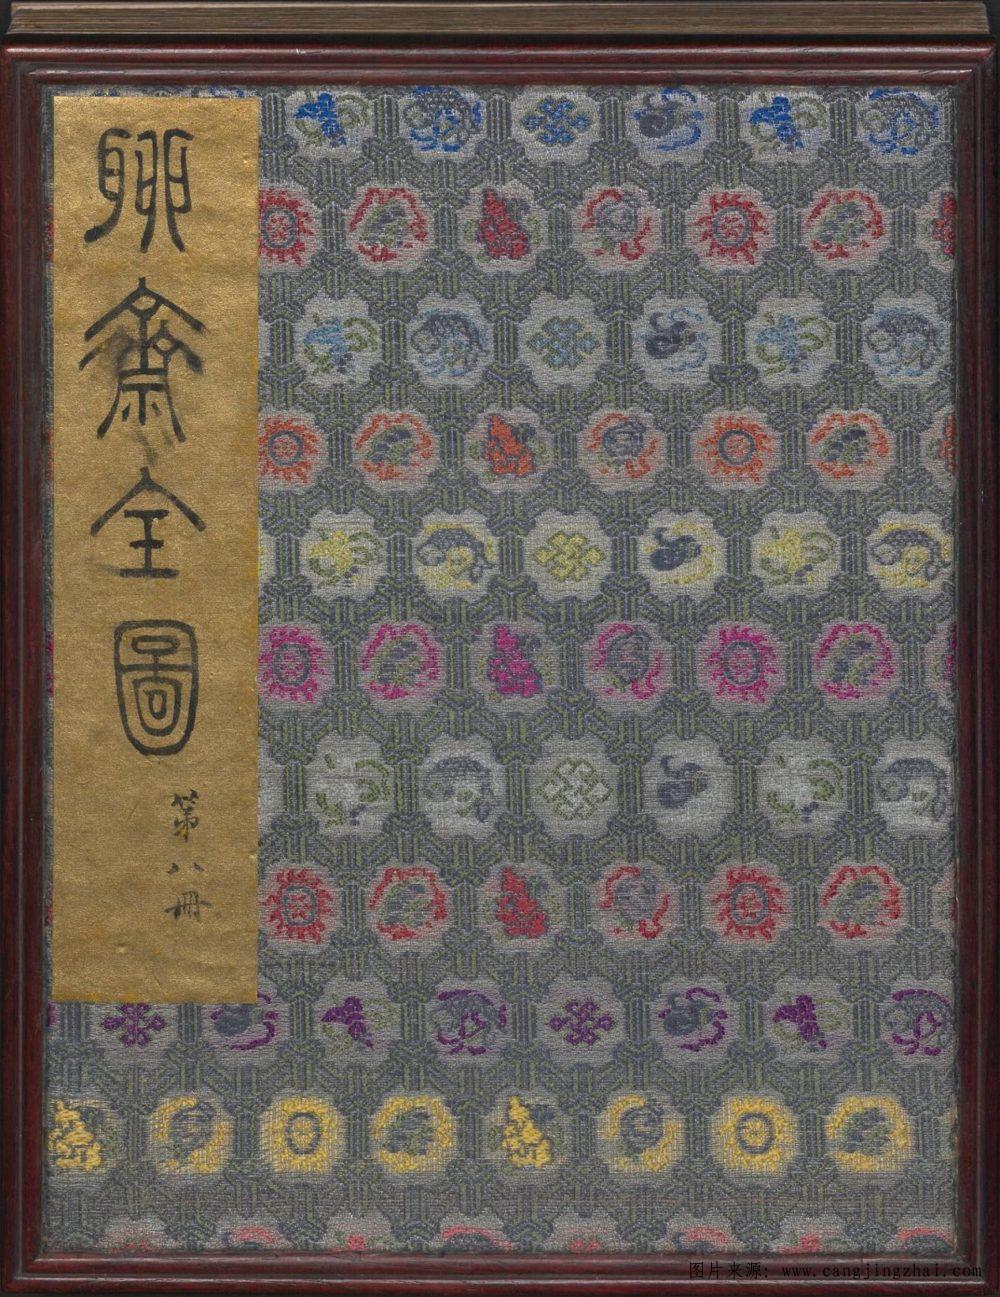 聊齋全圖
第八冊
图片来源：www.cangjingzhai.com